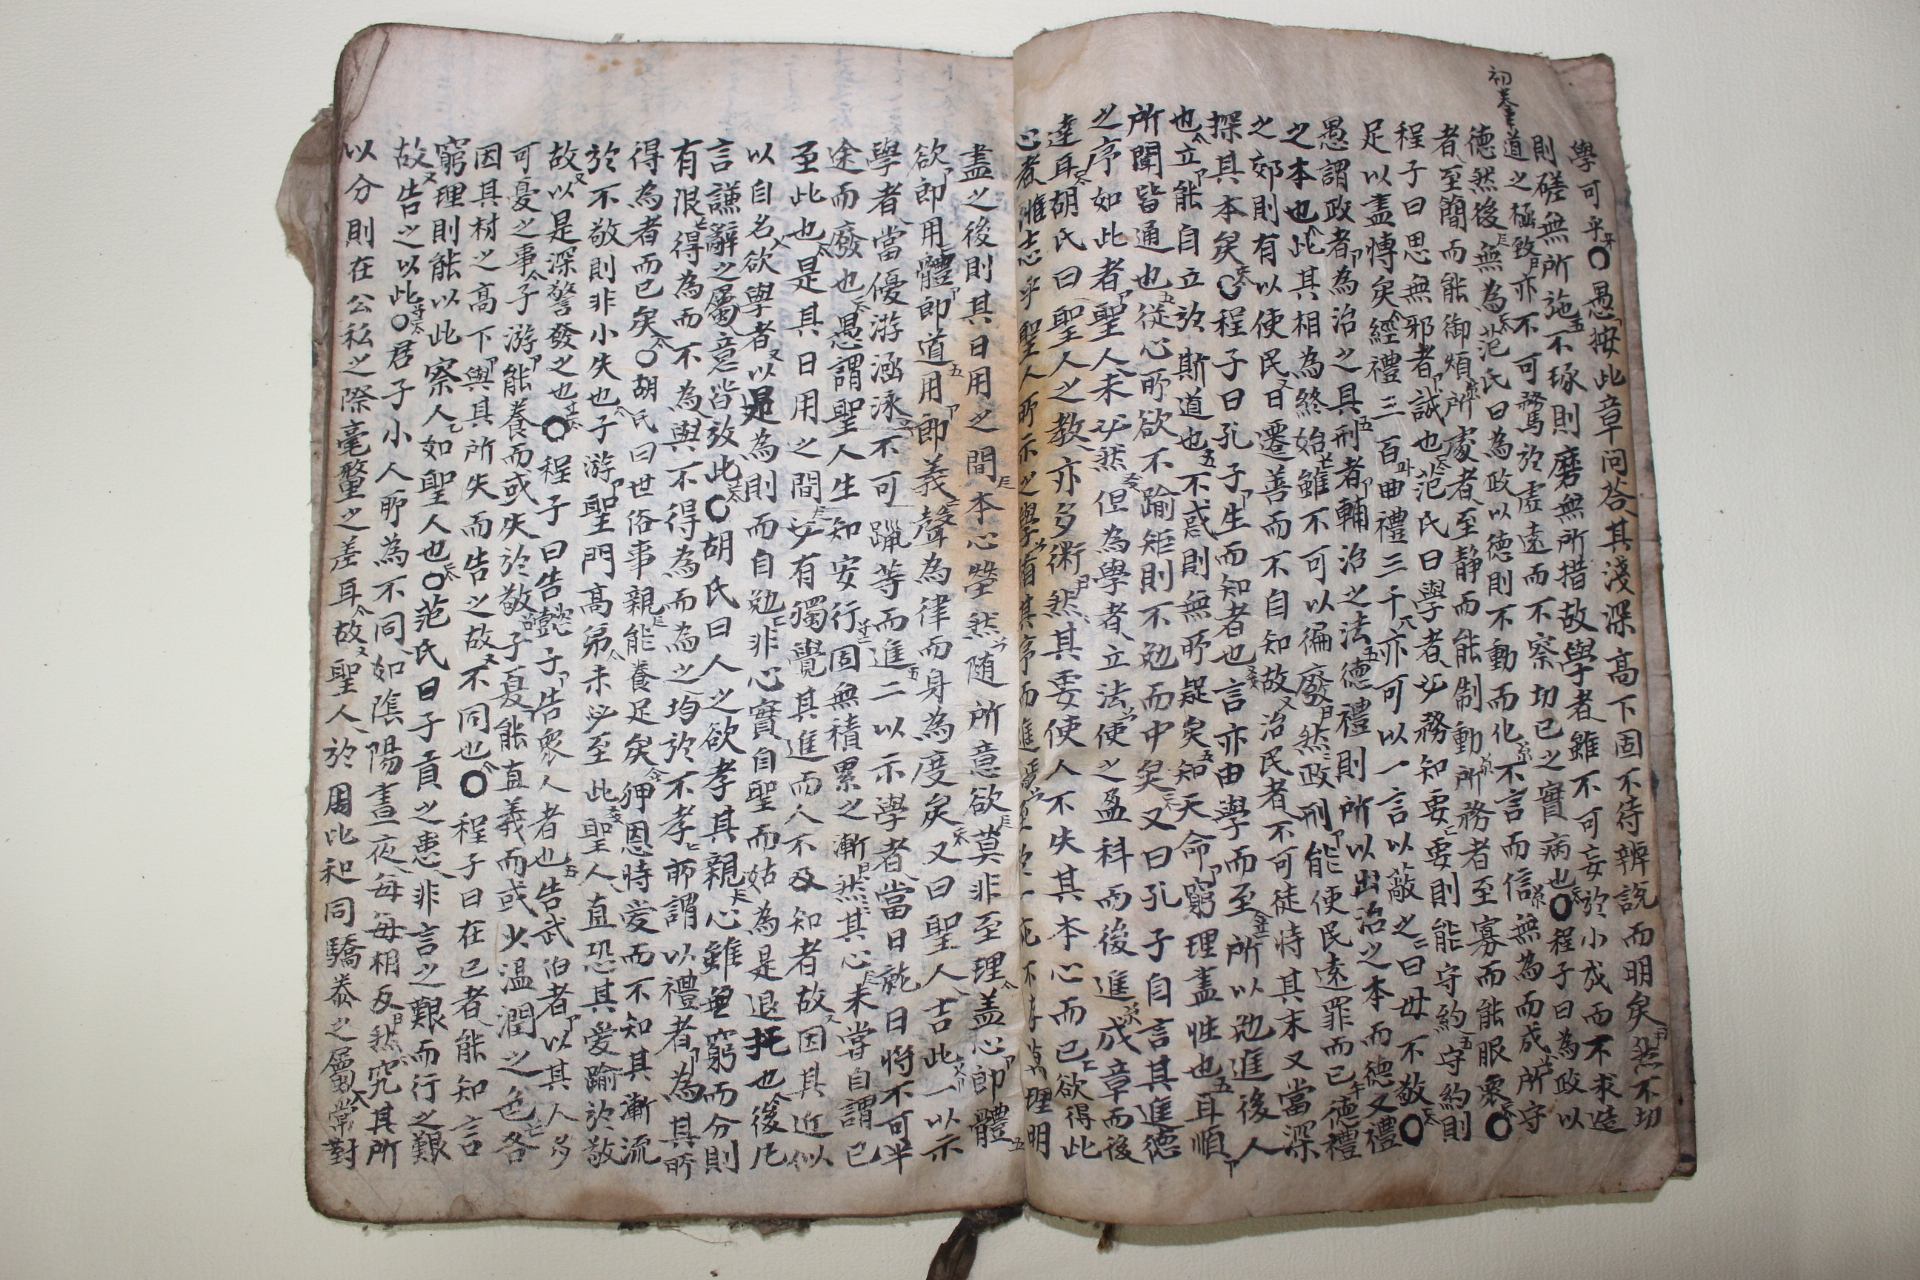 初卷
學可乎○愚按此章問答其淺深高下固不待辨說而明矣然不切
則磋無所施不琢則磨無所措故學者雖不可安於小成而不求造
道之極致亦不可騖於虛遠而不察切己之實病也○程子曰為政以
德然後無為范氏曰為政以德則不動而化不言而信無為而成所守
者至簡而能御煩所處者至靜而能制動所務者至寡而能服衆○
程子曰思無邪者誠也范氏曰學者必務知要要則能守約守約則
足以盡慱矣經禮三百曲禮三千亦可以一言以蔽之曰毋不敬○
愚謂政者為治之具刑者輔治之法德禮則所以出治之本而德又禮
之本也此其相為終始雖不可以徧廢然政刑能使民遠罪而已德禮
之郊則有以使民日遷善而不自知故治民者不可徒恃其末又當深
探其本矣○程子曰孔子生而知者也言亦由學而至所以勉進後人
也立能自立於斯道也不惑則無所疑矣知天命窮理盡性也耳順
所聞皆通也從心所欲不踰矩則不勉而中矣又曰孔子自言其進德
之序如此者聖人未必然但為學者立法使之盈科而後進成章而後
達耳胡氏曰聖人之教亦多術然其要使人不失其本心而已欲得此
心者惟志乎聖人所示之學循其序而進焉至於一疵不存萬理明
盡之後則其日用之間本心瑩然隨所意欲莫非至理盖心即體
欲即用體即道用即義聲為律而身為度矣又曰聖人言此一以示
學者當優游涵泳不可躐等而進二以示學者當日就日將不可半
途而廢也愚謂聖人生知安行固無積累之漸然其心未嘗自謂已
至此也是其日用之間必有獨覺其進而人不及知者故因其近似
以自名欲學者以是為則而自勉非心實自聖而姑為是退托也後凡
言謙辭之屬意皆放此○胡氏曰人之欲孝其親心雖無窮而分則
有限得為而不為與不得為而為之均於不孝所謂以禮者為其所
得為者而已矣○胡氏曰世俗事親能養足矣狎恩恃愛而不知其漸流
於不敬則非小失也子游聖門高弟未必至此聖人直恐其愛踰於敬
故以是深警發之也○程子曰告懿子告衆人者也告武伯者以其人多
可憂之事子游能養而或失於敬子夏能直義而或少溫潤之色各
因其材之高下與其所失而告之故不同也○程子曰在己者能知言
窮理則能以此察人如聖人也○范氏曰子貢之患非言之艱而行之艱
故告之以此○君子小人所為不同如陰陽晝夜每每相反然究其所
以分則在公私之際毫釐之差耳故聖人於周比和同驕泰之屬常對